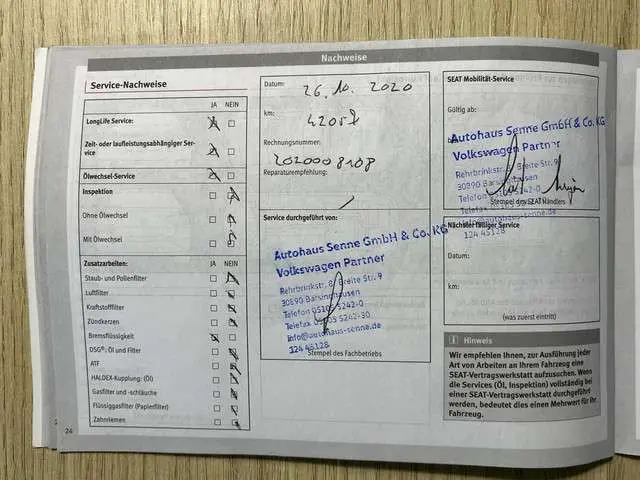 Nachweise
Service-Nachweise
JA NEIN
LongLife Service:
Zeit- oder laufleistungsabhängiger Ser-
vice
Ölwechsel-Service
Inspektion
Ohne Ölwechsel
Mit Ölwechsel
Zusatzarbeiten: JA NEIN
Staub- und Pollenfilter
Luftfilter
Kraftstofffilter
Zündkerzen
Bremsflüssigkeit
DSG®: Öl und Filter
ATF
HALDEX-Kupplung: (Öl)
Gasfilter und -schläuche
Flüssiggasfilter (Papierfilter)
Zahnriemen
24
Datum: 26.10.2020
km:
Rechnungsnummer:
2020008108
Reparaturempfehlung:
Service durchgeführt von:
Autohaus Senne GmbH & Co. KG
Volkswagen Partner
Rehrbrinkstr. 8, Breite Str. 9
30890 Barsinghausen
Telefon 05105 5242-0
Telefax 05105 5242-30
info@autohaus-senne.de
124 45128
Stempel des Fachbetriebs
SEAT Mobilität-Service
Gültig ab:
Autohaus Senne GmbH & Co. KG
Volkswagen Partner
Rehrbrinkstr. 8, Breite Str. 9
30890 Barsinghausen
Telefon
Telefax
Stempel des SEAT Händlers
info@autohaus-senne.de
Nächster fälliger Service
124 45128
Datum:
km:
(was zuerst eintritt)
i Hinweis
Wir empfehlen Ihnen, zur Ausführung jeder
Art von Arbeiten an Ihrem Fahrzeug eine
SEAT-Vertragswerkstatt aufzusuchen. Wenn
die Services (Öl, Inspektion) vollständig bei
einer SEAT-Vertragswerkstatt durchgeführt
werden, bedeutet dies einen Mehrwert für Ihr
Fahrzeug.